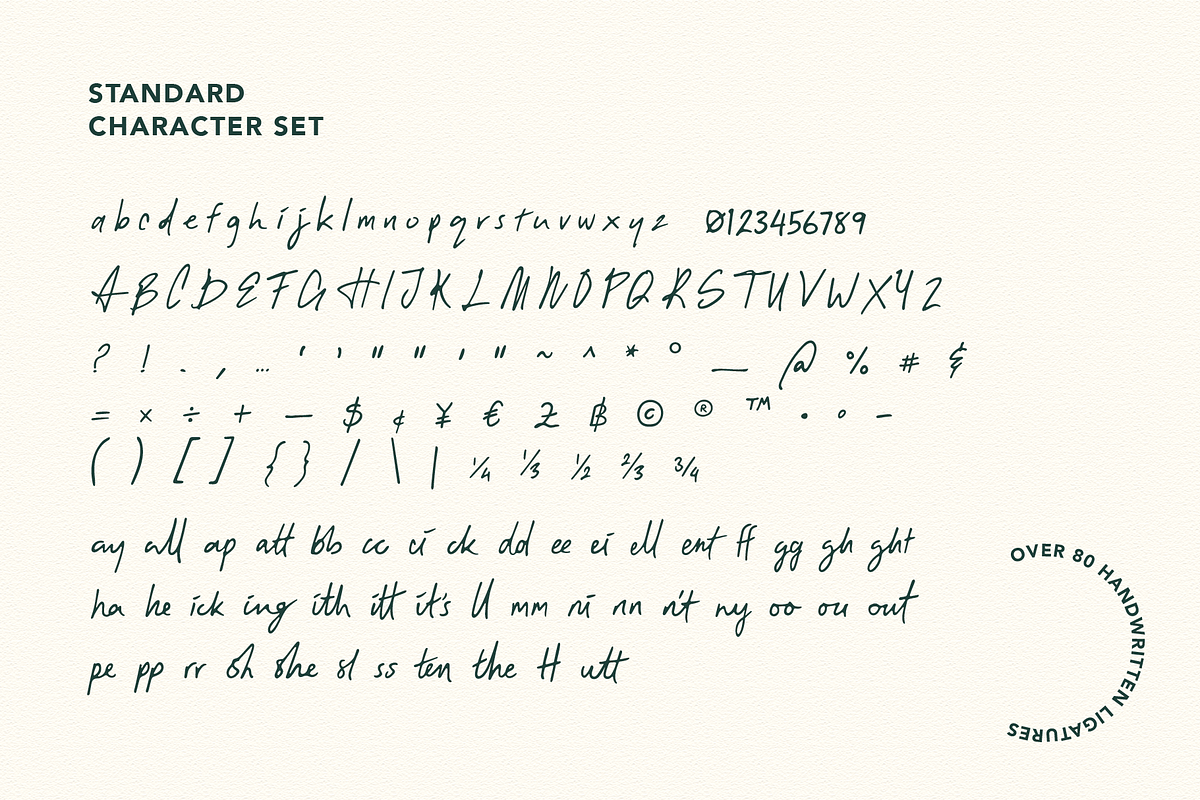 STANDARD
CHARACTER SET
a b c d e f g h i j k l m n o p q r s t u v w x y z 0123456789
A B C D E F G H I J K L M N O P Q R S T U V W X Y Z
? ! . , … ‘ ’ “ ” ' " ~ ^ * ° _ @ % # &
= × ÷ + — $ ¢ ¥ € ₿ © ® ™ • ◦ –
( ) [ ] { } / \ | ¼ ⅓ ½ ⅔ ¾
ay all ap att bb cc ci ck dd ee ei ell ent ff gg gh ght
ha he ick ing ith itt it's ll mm ni nn n't ny oo ou out
pe pp rr sh she sl ss ten the tt utt
OVER 80 HANDWRITTEN LIGATURES